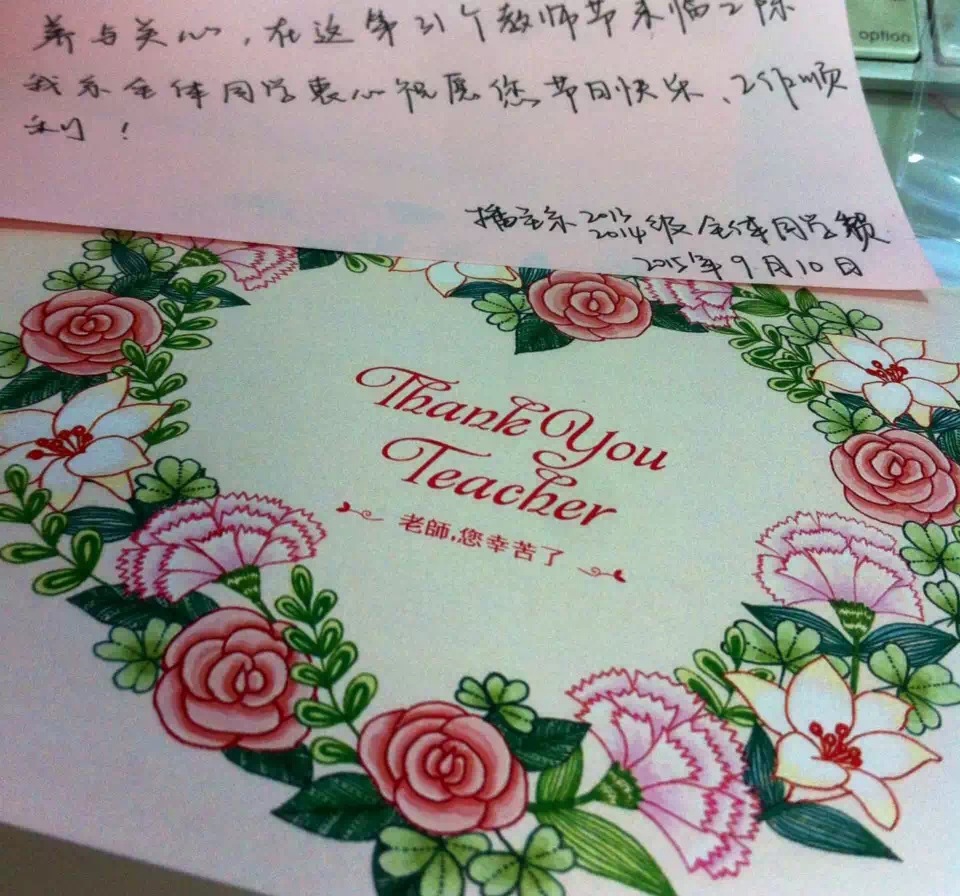 养与关心，在这第31个教师节来临之际
我系全体同学衷心祝愿您节日快乐、工作顺
利！
播主系2013
2014级全体同学贺
2015年9月10日
option
Thank You
Teacher
老師,您幸苦了